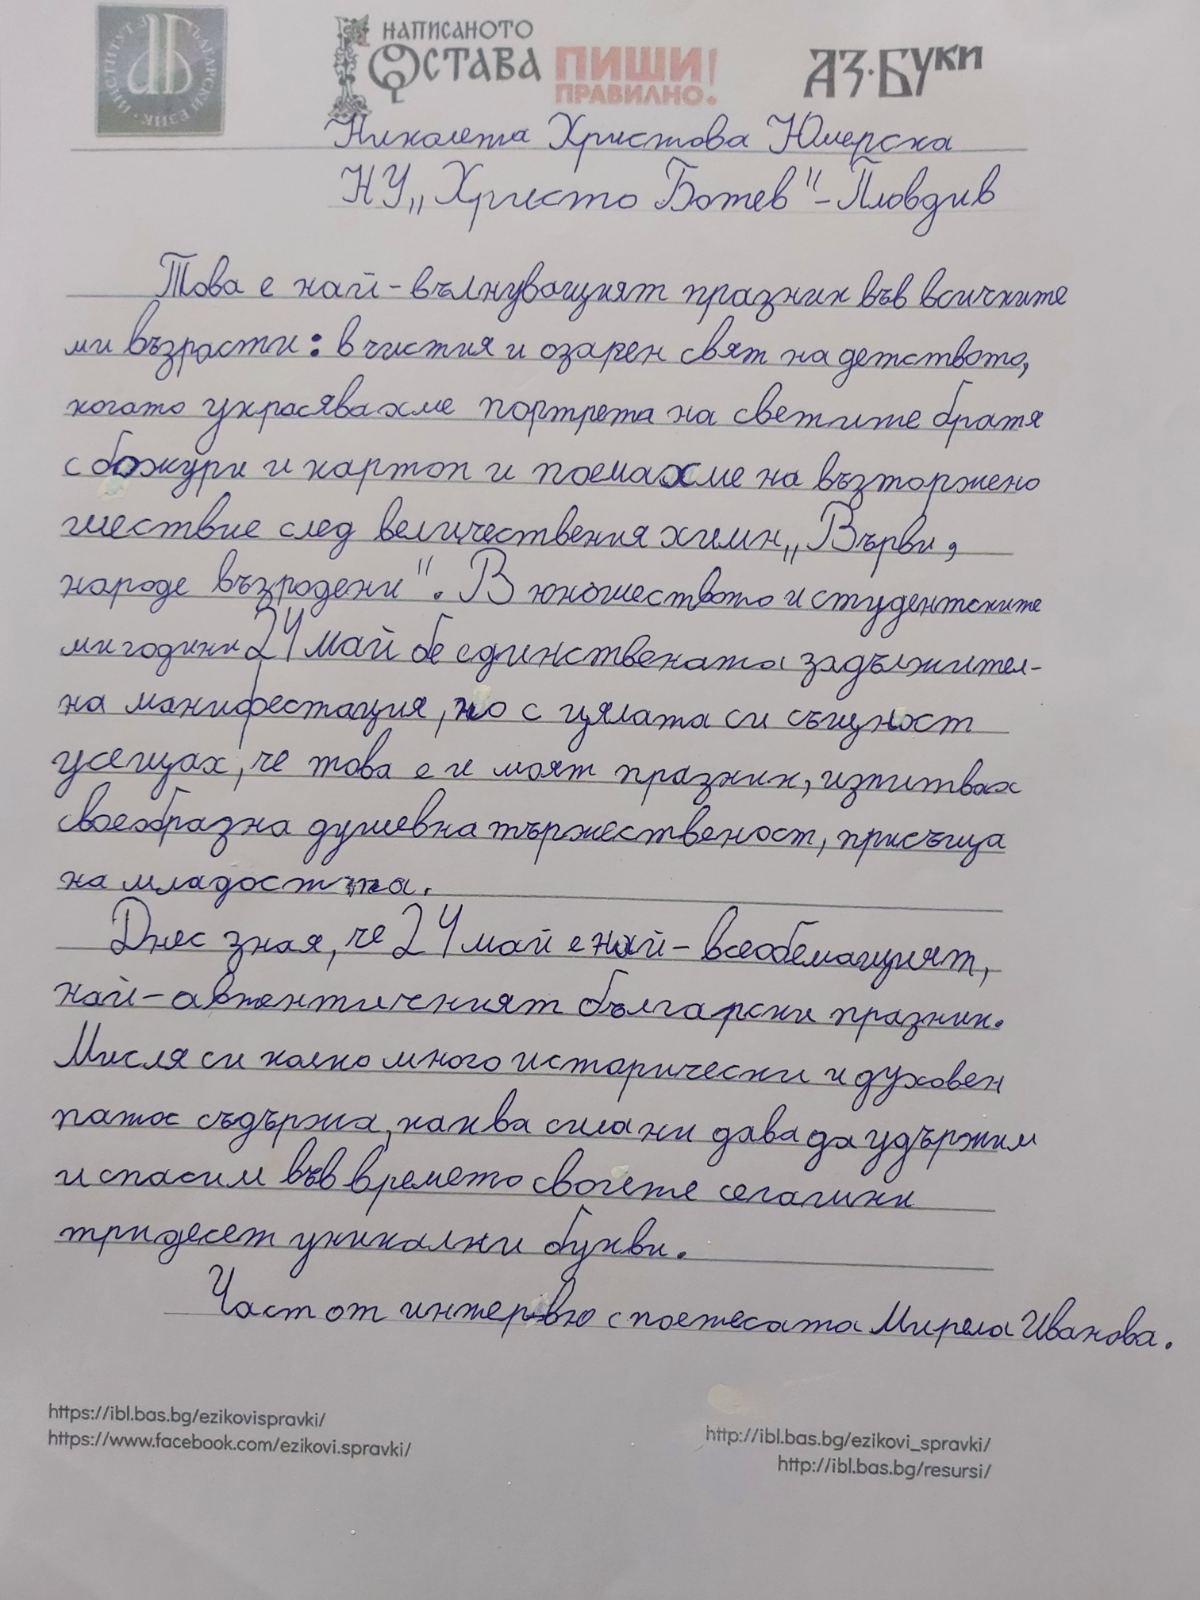 ИНСТИТУТ ЗА БЪЛГАРСКИ ЕЗИК
НАПИСАНОТО
ОСТАВА
ПИШИ
ПРАВИЛНО!
АЗ·БУКИ
Николета Христова Юмерска
НУ„Христо Ботев" - Пловдив
Това е най-вълнуващият празник във всичките
ми възрасти: в чистия и озарен свят на детството,
когато украсявахме портрета на светите братя
с божури и картоп и поемахме на възторжено
шествие след величествения химн „Върви,
народе възродени". В юношеството и студентските
ми години 24 май бе единствената задължител-
на манифестация, но с цялата си същност
усещах, че това е и моят празник, изпитвах
своеобразна душевна тържественост, присъща
на младостта.
Днес зная, че 24 май е най-всеобемащият,
най-автентичният български празник.
Мисля си колко много исторически и духовен
патос съдържа, каква сила ни дава да удържим
и спасим във времето своите сегашни
тридесет уникални букви.
Част от интервю с поетесата Мирела Иванова.
https://ibl.bas.bg/ezikovispravki/
https://www.facebook.com/ezikovi.spravki/
http://ibl.bas.bg/ezikovi_spravki/
http://ibl.bas.bg/resursi/